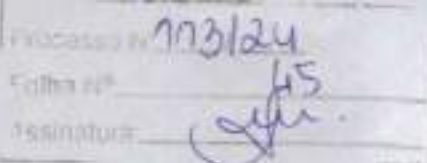 Processo Nº 113/24
Folha Nº 45
Assinatura